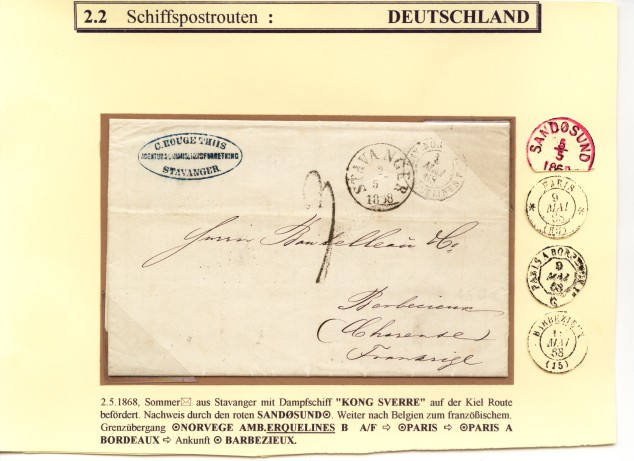 2.2 Schiffspostrouten : DEUTSCHLAND
C. ROUGE THIIS
STAVANGER.
STAVANGER
2
5
1868
9
Herrn
Barbezieux
(Charente)
SANDØSUND
5
5
186
PARIS
9
MAI
68
PARIS A BORDEAUX
9
MAI
68
BARBEZIEUX
MAI
68
(15)
2.5.1868, Sommer✉ aus Stavanger mit Dampfschiff "KONG SVERRE" auf der Kiel Route
befördert. Nachweis durch den roten SANDØSUND⊙. Weiter nach Belgien zum französischem.
Grenzübergang ⊙NORVEGE AMB.ERQUELINES B A/F ⇨ ⊙PARIS ⇨ ⊙PARIS A
BORDEAUX ⇨ Ankunft ⊙ BARBEZIEUX.